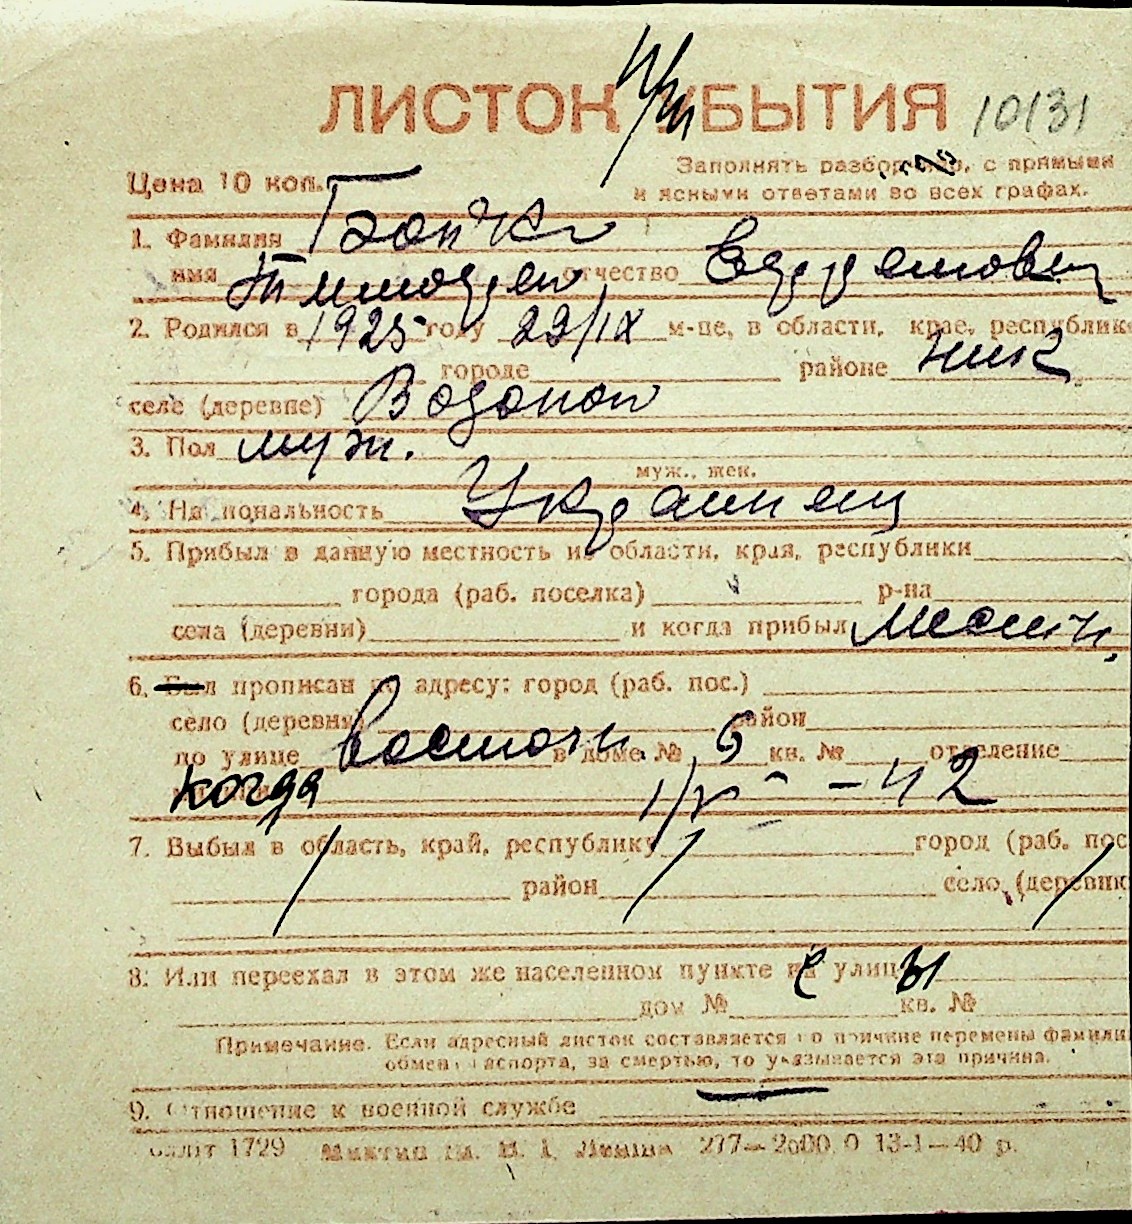 ЛИСТОК УБЫТИЯ 10131
Цена 10 коп.
Заполнять разборчиво, с прямыми
и ясными ответами во всех графах.
1. Фамилия
имя Тимофей отчество
2. Родился в 1925 году 22/IX м-це, в области, крае, республике
городе районе Ник
селе (деревне) Водопой
3. Пол муж.
муж., жен.
4. Национальность Украинец
5. Прибыл в данную местность из области, края, республики
города (раб. поселка) р-на
села (деревни) и когда прибыл местн.
6. Был прописан по адресу: город (раб. пос.)
село (деревня) район
по улице Восточн. в доме № 6 кв. № отделение
когда 1/V - 42
7. Выбыл в область, край, республику город (раб. пос
район село, (деревня
8. Или переехал в этом же населенном пункте на улицу
дом № кв. №
Примечание. Если адресный листок составляется по причине перемены фамилии
обмена паспорта, за смертью, то указывается эта причина.
9. Отношение к военной службе
1729 277—2000 13-1—40 р.